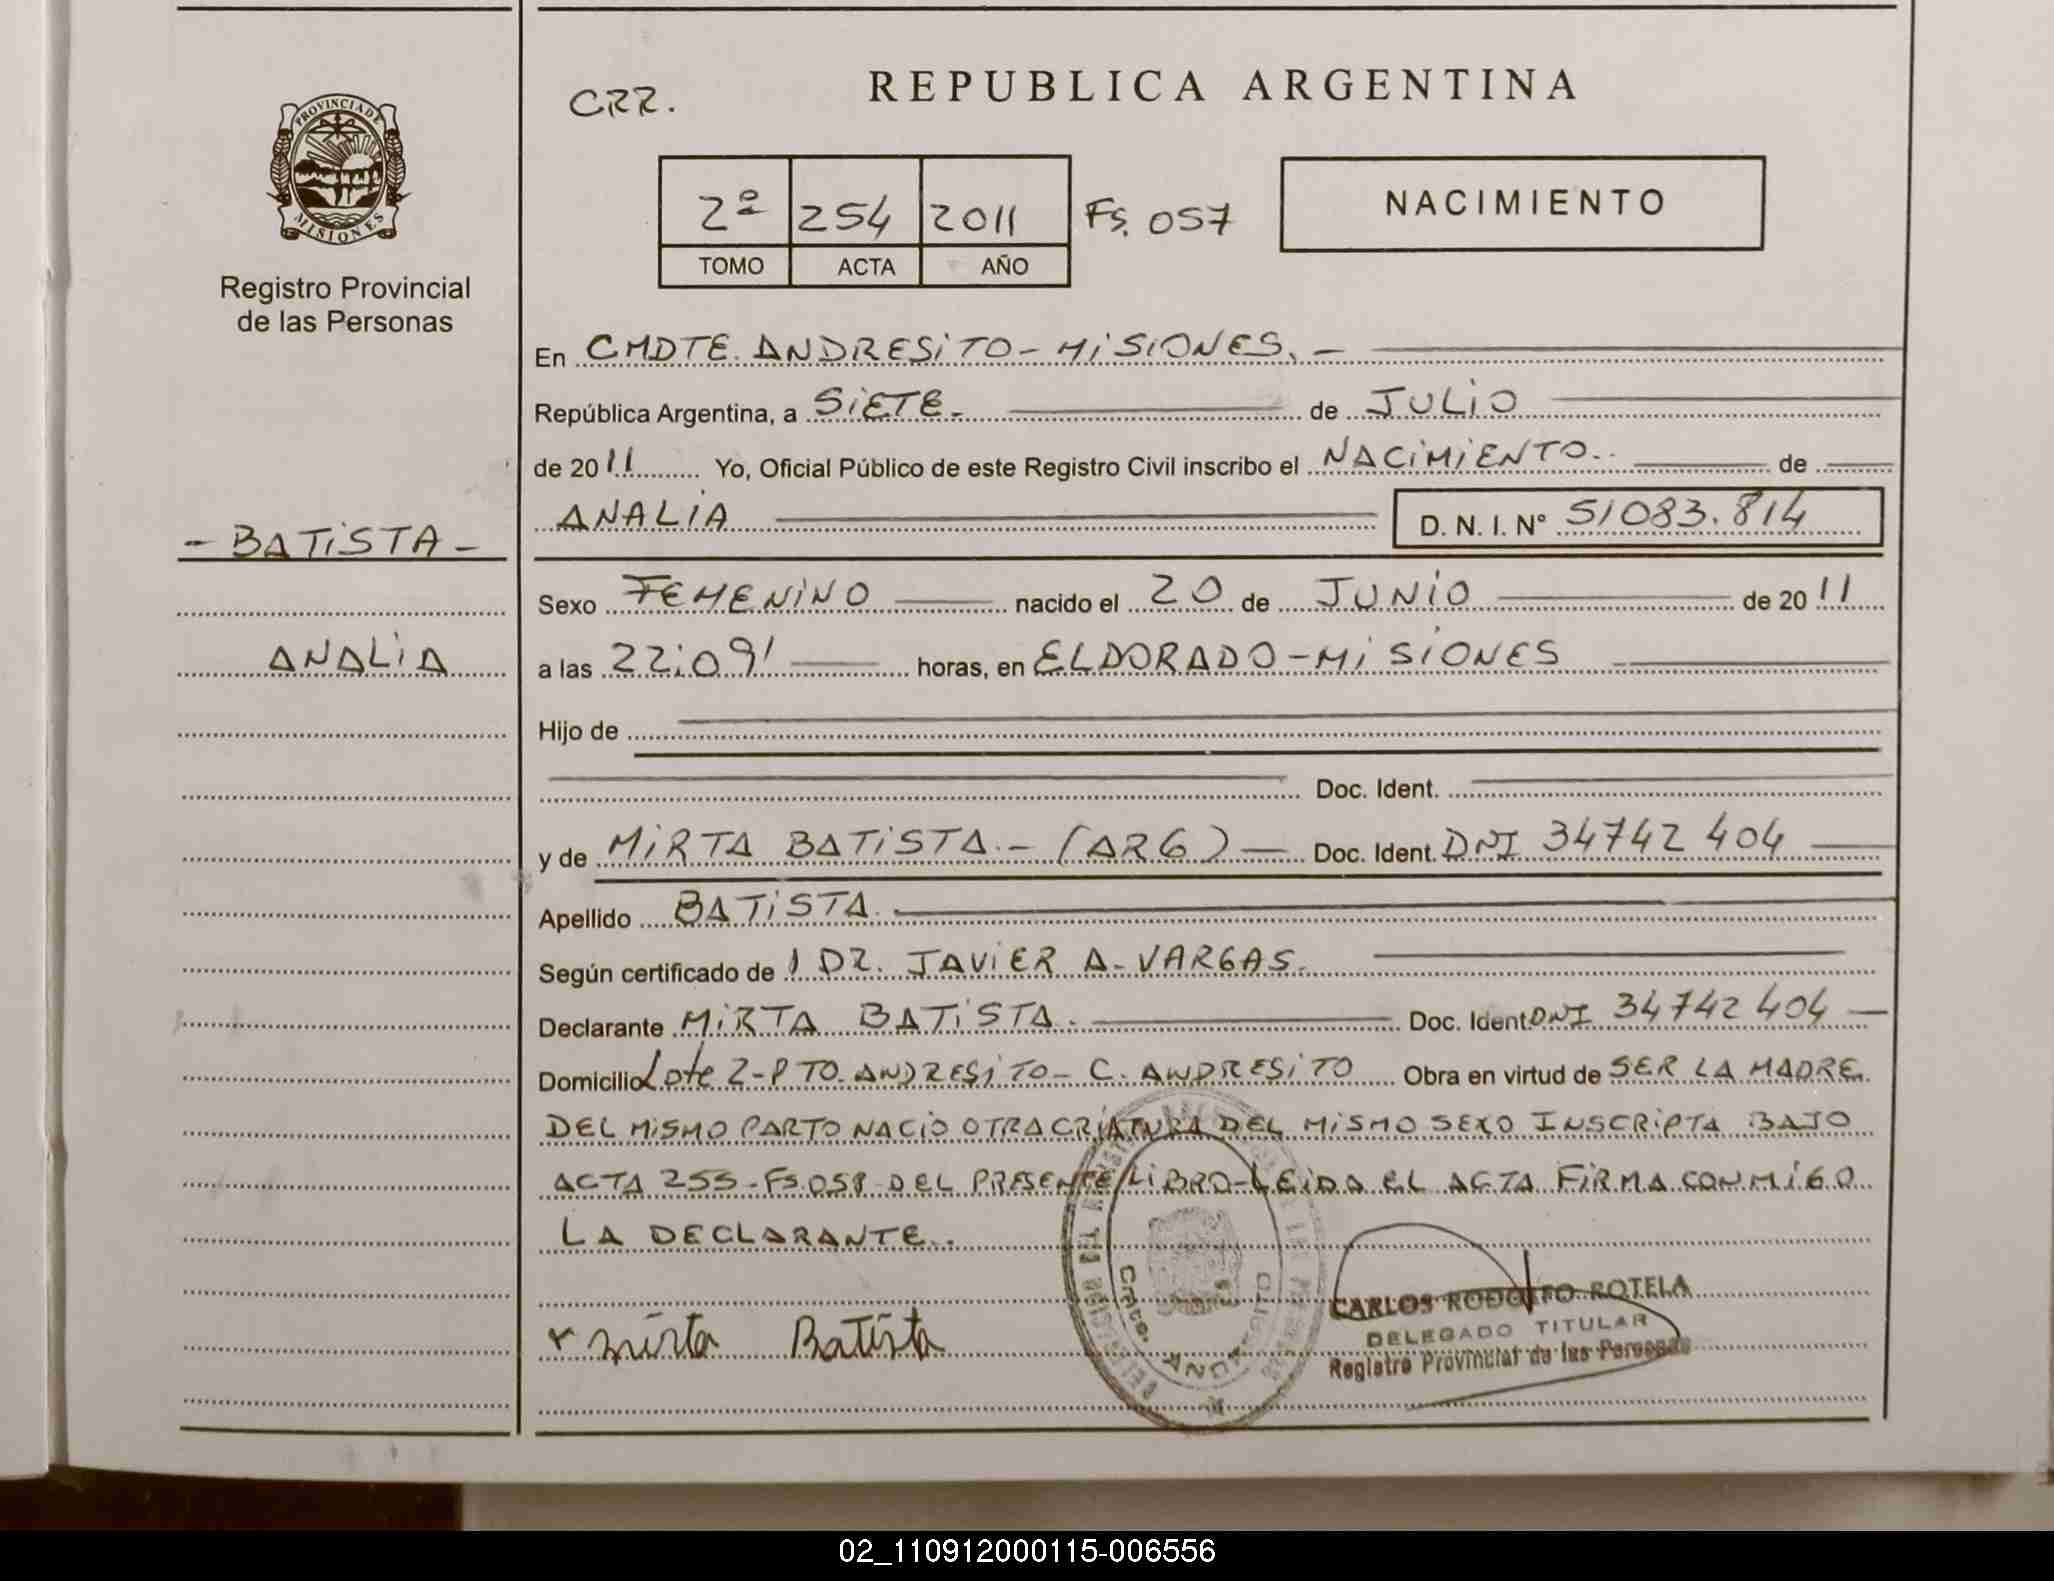 PROVINCIA DE
MISIONES
Registro Provincial
de las Personas
- BATISTA -
ANALIA
CRR.
REPUBLICA ARGENTINA
2º 254 2011 Fs. 057
TOMO ACTA AÑO
NACIMIENTO
En CMDTE. ANDRESITO - MISIONES. -
República Argentina, a SIETE. de JULIO
de 2011 Yo, Oficial Público de este Registro Civil inscribo el NACIMIENTO.. de
ANALIA D. N. I. N° 51083.814
Sexo FEMENINO nacido el 20 de JUNIO de 2011
a las 22:09' horas, en ELDORADO - MISIONES
Hijo de
Doc. Ident.
y de MIRTA BATISTA. - (ARG) Doc. Ident. DNI 34742 404
Apellido BATISTA.
Según certificado de DR. JAVIER A. VARGAS.
Declarante MIRTA BATISTA. Doc. Ident DNI 34742 404
Domicilio Lote 2 - PTO. ANDRESITO - C. ANDRESITO Obra en virtud de SER LA MADRE.
DEL MISMO PARTO NACIO OTRA CRIATURA DEL MISMO SEXO INSCRIPTA BAJO
ACTA 255 - Fs. 058 DEL PRESENTE LIBRO - LEIDA EL ACTA FIRMA CONMIGO
LA DECLARANTE..
x mirta Batista
Cmte. ANDRESITO
CARLOS RODOLFO ROTELA
DELEGADO TITULAR
Registro Provincial de las Personas
02_110912000115-006556